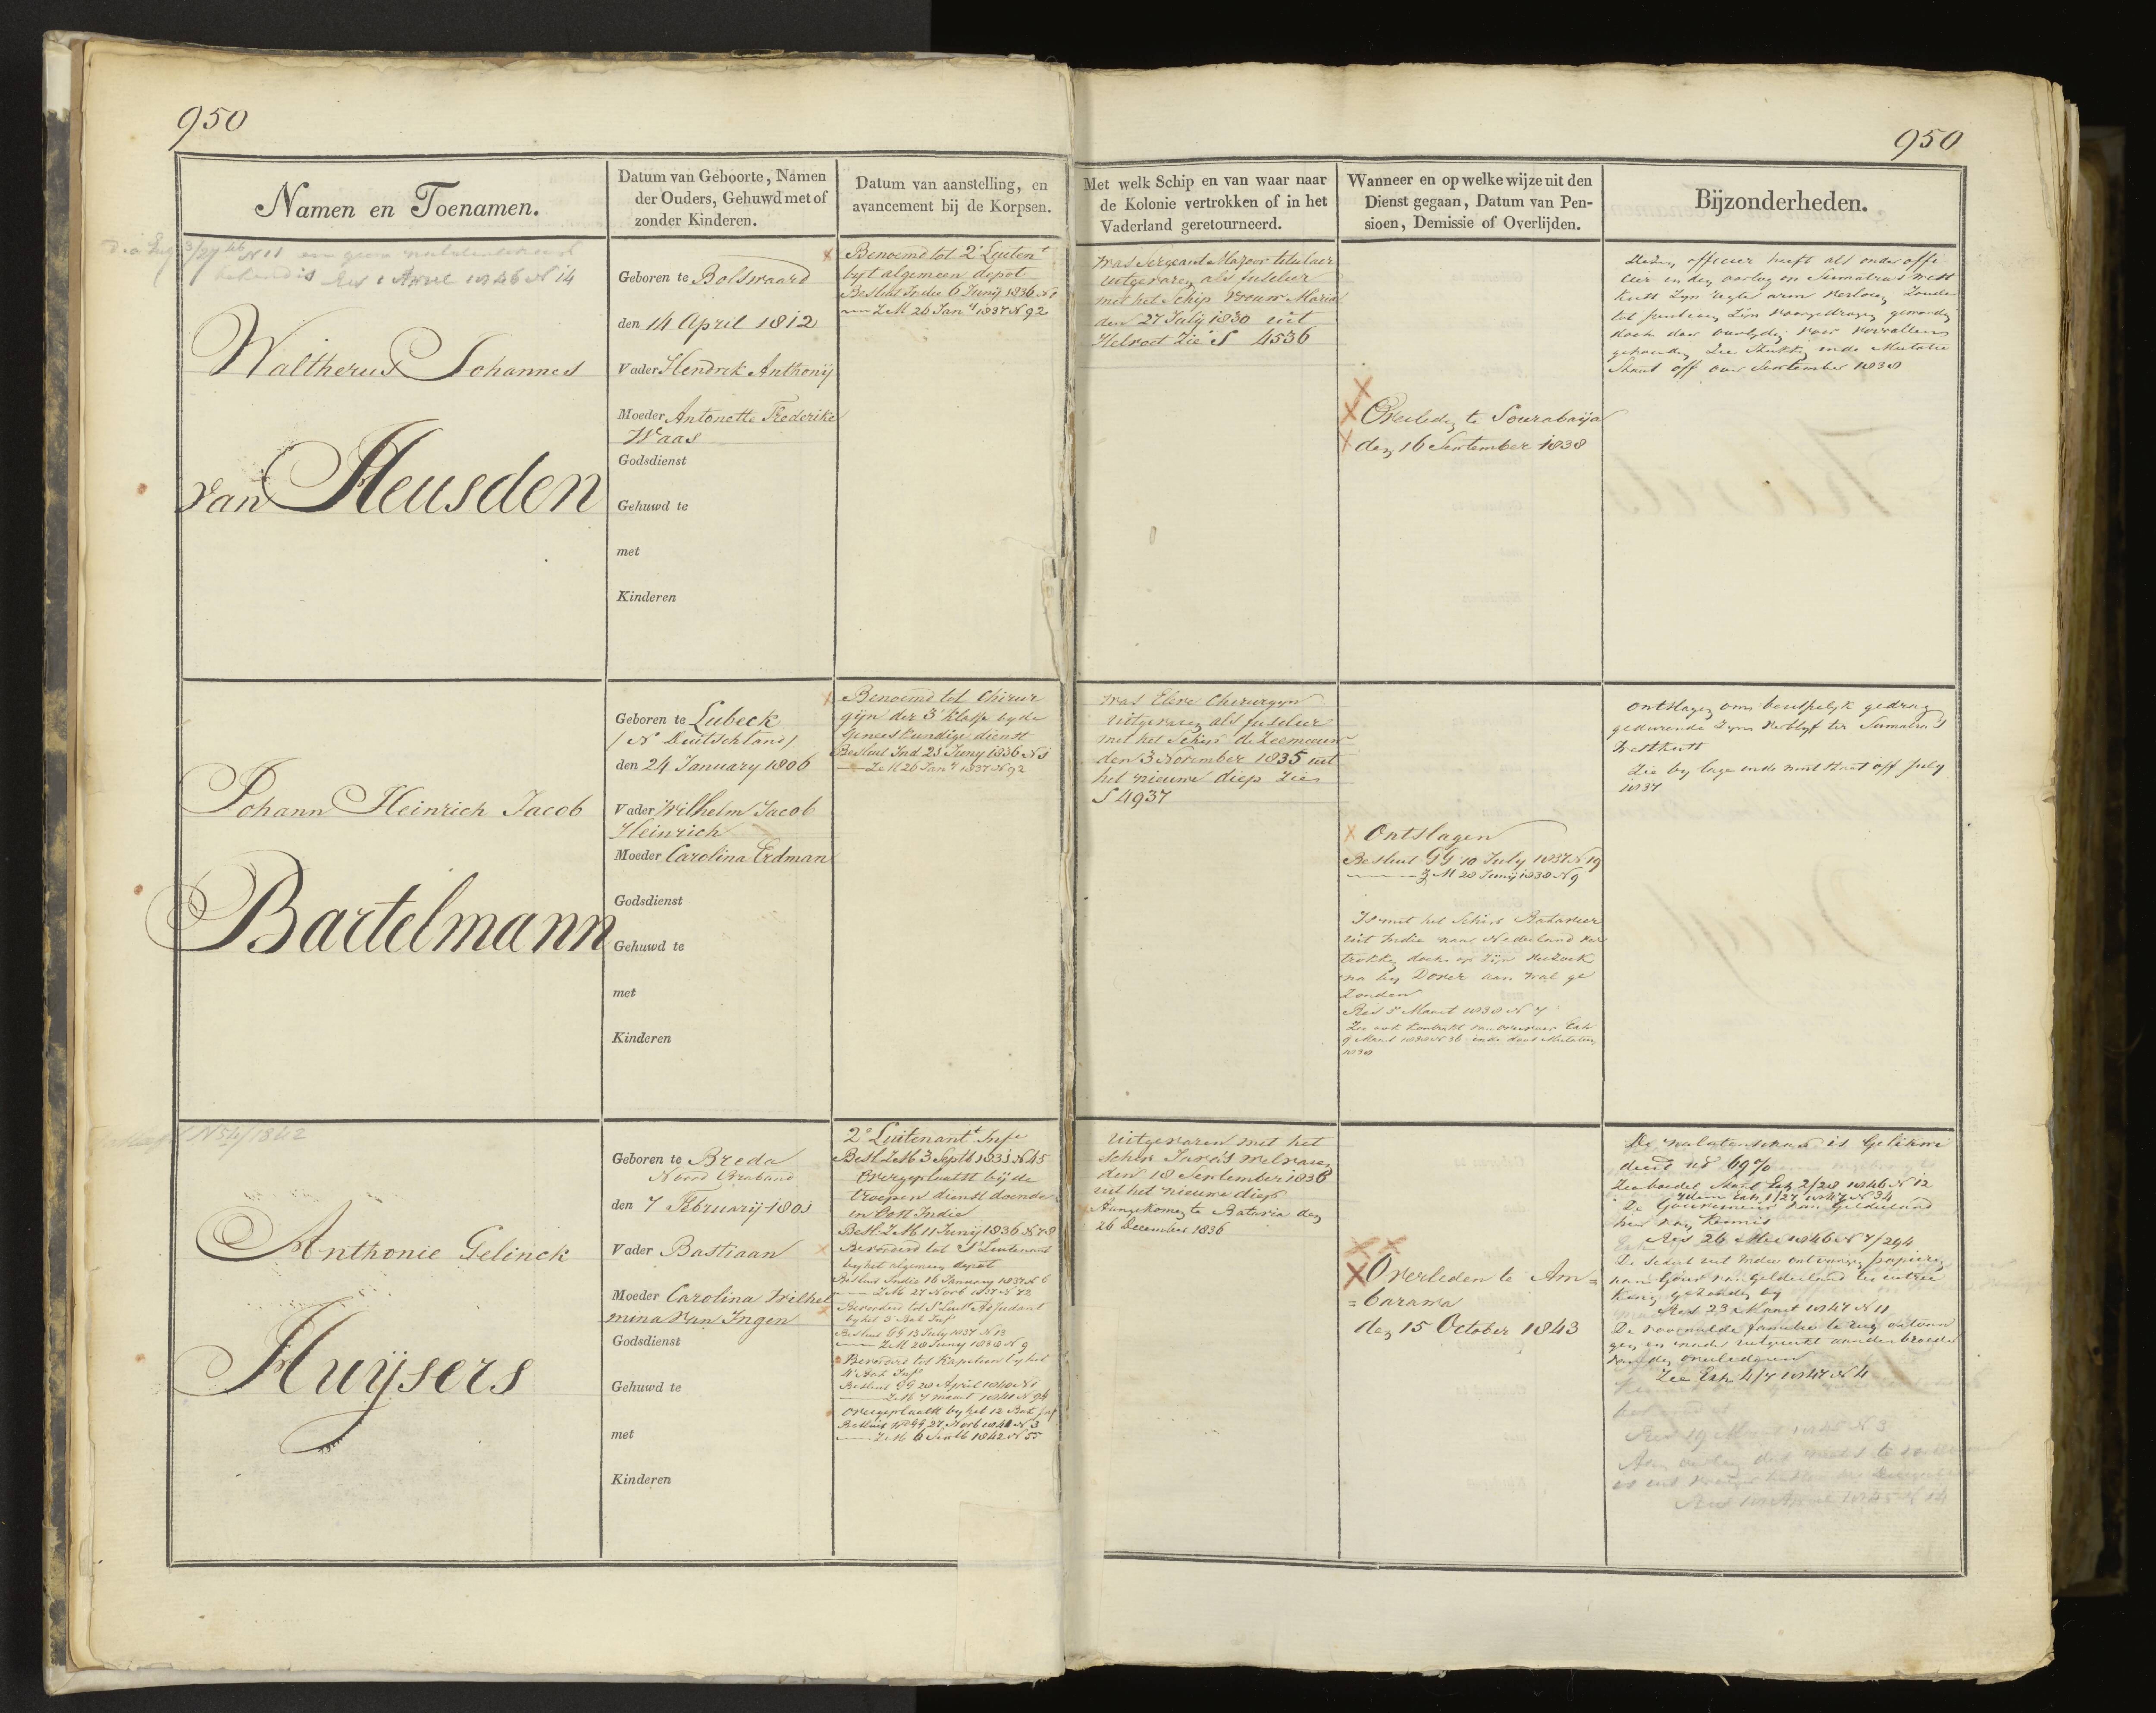 950
950
Namen en Toenamen.
Datum van Geboorte, Namen
der Ouders, Gehuwd met of
zonder Kinderen.
Datum van aanstelling, en
avancement bij de Korpsen.
Met welk Schip en van waar naar
de Kolonie vertrokken of in het
Vaderland geretourneerd.
Wanneer en op welke wijze uit den
Dienst gegaan, Datum van Pen-
sioen, Demissie of Overlijden.
Bijzonderheden.
Res 1 April 1846 N 14
Waltherus Johannes
van Heusden
Geboren te Bolswaard
den 14 April 1812
Vader Hendrik Anthonij
Moeder Antonette Frederike
Waas
Godsdienst
Gehuwd te
met
Kinderen
Benoemd tot 2e Luitent
byt algemeen depot
Besluit Indie 6 Junij 1836 N 1
Z M 26 Jany 1837 N 92
was Sergeant Majoor titulair
uitgevaren als fuselier
met het Schip Vrouw Maria
den 27 July 1830 uit
Helvoet Zie S 4536
Overleden te Sourabaija
den 16 September 1838
Dezen officier heeft als onder offi
cier in den oorlog op Sumatras West
Kust zyn regter arm verloren, Zoude
tot pensioen zijn voorgedragen geworden
doch door overlyden voor vervallen
gehouden Zie Stukken in de Mutatie
Staat off over September 1838
Johann Heinrich Jacob
Bartelmann
Geboren te Lubeck
/ N Duitschland /
den 24 January 1806
Vader Wilhelm Jacob
Heinrich
Moeder Carolina Erdman
Godsdienst
Gehuwd te
met
Kinderen
Benoemd tot Chirur
gijn der 3e Klasse by de
Geneeskundige dienst
Besluit Ind 23 Juny 1836 N 1
Z M 26 Jany 1837 N 92
was Eleve Cherurgyn
uitgevaren als fuselier
met het Schip de Zeemeeuw
den 3 November 1835 uit
het nieuwe diep Zie
S 4937
Ontslagen
Besluit GG 10 July 1837 N 19
Z M 28 Junij 1838 N 9
Is met het Schip Batavier
uit Indie naar Nederland ver
trokken doch op zijn verzoek
na by Dover aan wal ge
zonden
Res 5 Maart 1838 N 7
9 Maart 1838 N 36 in de Mutatien
1838
ontslagen om berispelyk gedrag
gedurende zyn verblyf ter Sumatra's
Westkust
Zie by lage in de mut staat off July
1837
N 54/1842
Anthonie Gelinck
Huijsers
Geboren te Breda
Noord Braband
den 7 Februarij 1801
Vader Bastiaan
Moeder Carolina Wilhel
mina van Ingen
Godsdienst
Gehuwd te
met
Kinderen
2e Luitenant Infe
Besl. Z M 3 Sept 1831 N 45
Overgeplaatst bij de
troepen dienst doende
in Oost Indie
Besl. Z M 11 Junij 1836 N 78
Bevorderd tot 1e Luitenant
by het algemeen depot
Besluit Indie 16 January 1837 N 6
Z M 27 Novb 1837 N 72
Bevorderd tot 1e Luitt Adjudant
by het 5 Bat Inf
Besluit GG 13 July 1837 N 13
Z M 28 Juny 1838 N 9
Bevorderd tot Kapitein by het
4 Bat Inf
Besluit GG 20 April 1840 N 1
Z M 7 maart 1841 N 94
Overgeplaatst by het 12 Bat Inf
Besluit GG 27 Novb 1841 N 3
Z M 6 Septb 1842 N 55
uitgevaren met het
schip Java's welvaren
den 18 September 1836
uit het nieuwe diep
Aangekomen te Batavia den
26 December 1836
Overleden te Am=
=barawa
den 15 October 1843
De nalatenschap is Gelikwi
deerd
Zie boedel Staat Exh 2/28 1846 N 12
idem Exh 1/27 1847 N 34
De Gouverneur van Gelderland
hier van Kennis
Res 26 Mei 1846 N 7/294
De sedert uit Indie ontvangen papieren
aan Gouv van Gelderland ter uitrei
king gezonden by
Res 23 Maart 1847 N 11
De voormelde familie te rug ontvan
gen en mede uitgereikt aan den broeder
van den overledenen
Zie Exh 4/7 1847 N 4